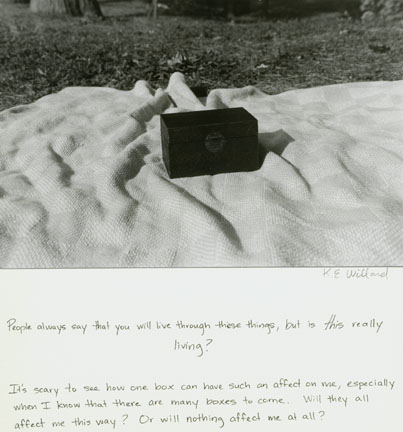 K E Willard
People always say that you will live through these things, but is this really
living?
It's scary to see how one box can have such an affect on me, especially
when I know that there are many boxes to come. Will they all
affect me this way? Or will nothing affect me at all?